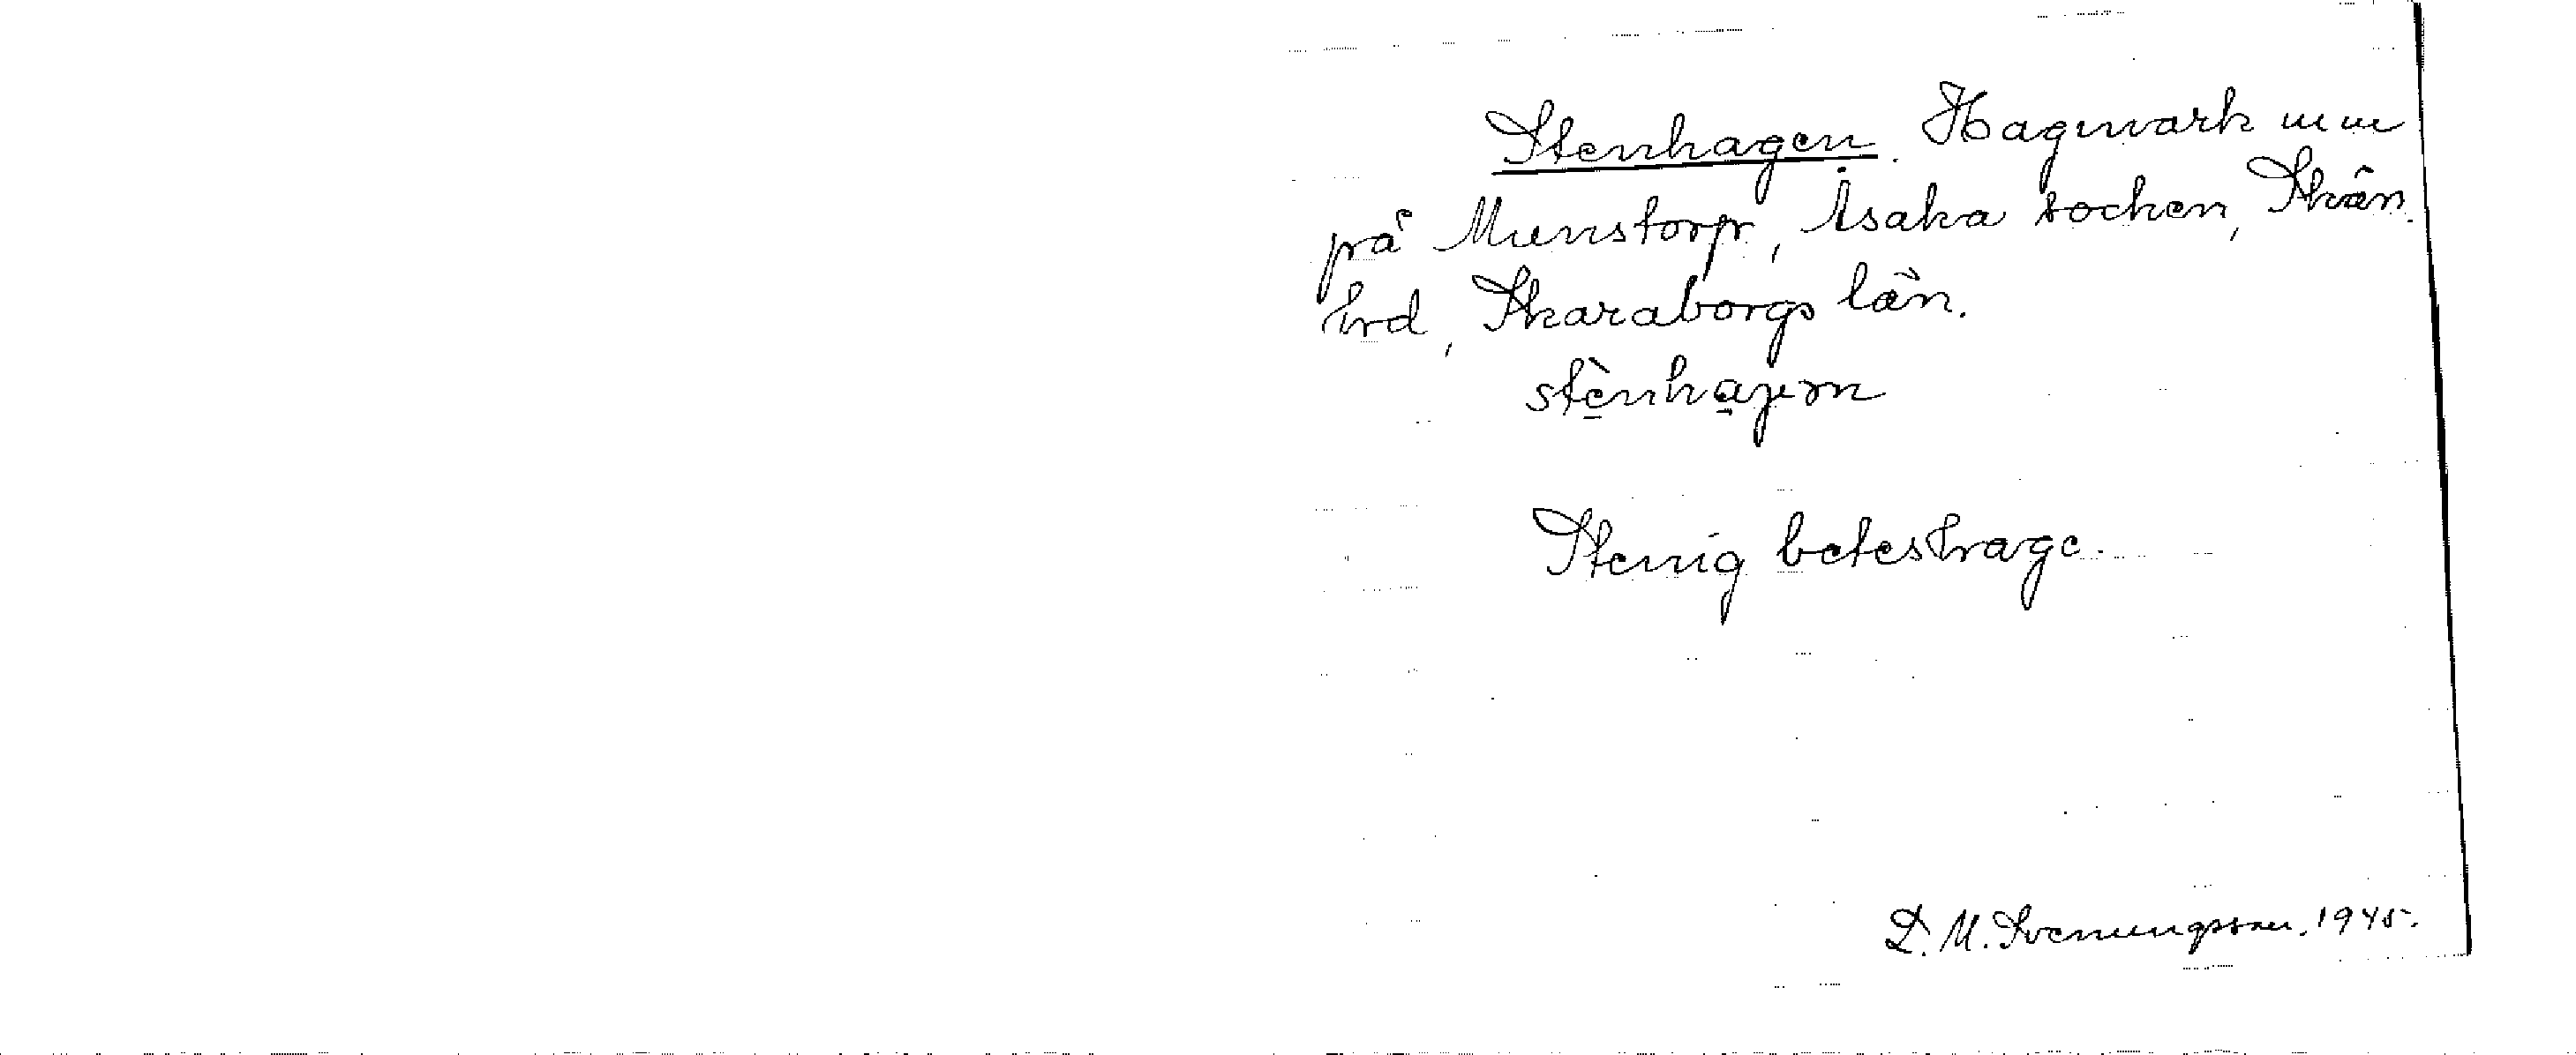 Stenhagen. Hagmark mm
på Munstorp, Åsaka socken, Skån.
hrd, Skaraborgs län.
stènhagen
Stenig beteshage.
D. M. Svenungsson. 1945.